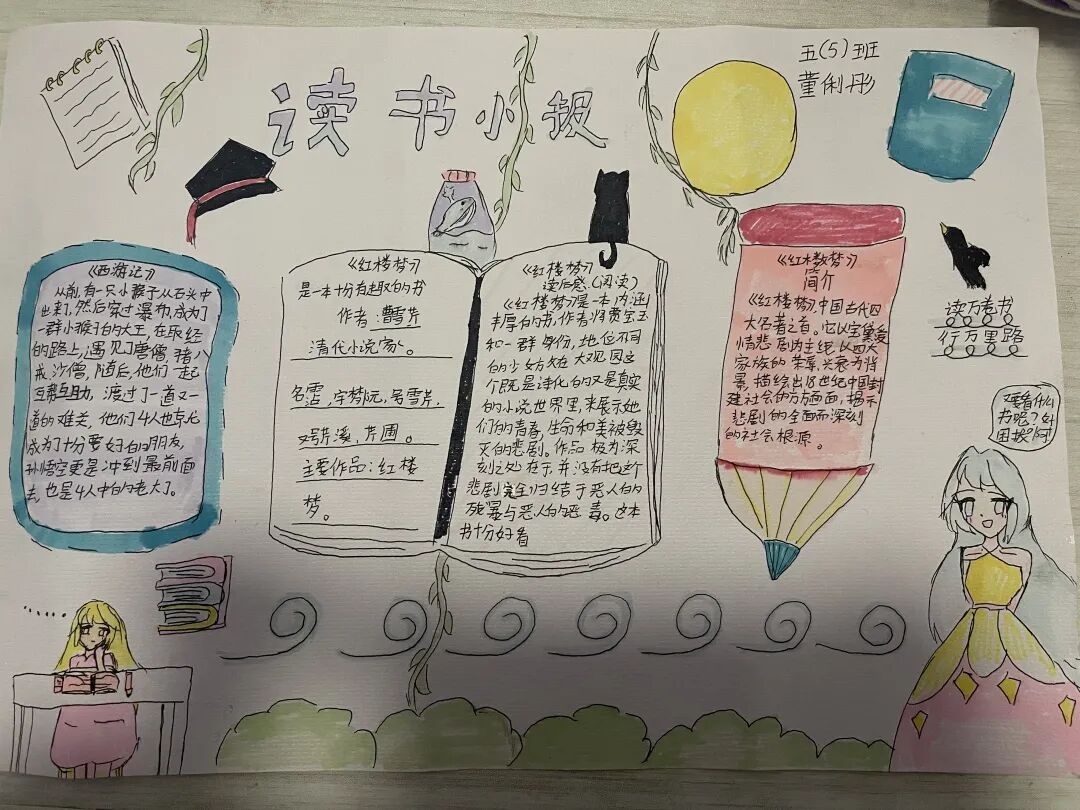 读书小报
五(5)班
董俐彤
《西游记》
从前,有一只小猴子从石头中
出来,然后穿过瀑布,成为了
一群小猴子的大王,在取经
的路上,遇见了唐僧,猪八
戒,沙僧,随后,他们一起
互帮互助,渡过了一道又一
道的难关,他们4人也就
成为十分要好的朋友,
孙悟空更是冲到最前面
去,也是4人中的老大了。
《红楼梦》
是一本十分有趣的书
作者:曹雪芹
清代小说家。
名沾,字梦阮,号雪芹,
又号芹溪,芹圃。
主要作品:红楼
梦。
《红楼梦》
读后感(阅读)
《红楼梦》是一本内涵
丰厚的书,作者将贾宝玉
和一群身份,地位不同
的少女放在大观园这
个既是诗化的又是真实
的小说世界里,来展示她
们的青春,生命和美被毁
灭的悲剧。作品极为深
刻之处在于,并没有把这个
悲剧完全归结于恶人的
残暴与恶人的恶毒。这本
书十分好看
《红楼梦》
简介
《红楼梦》,中国古代四
大名著之首。它以宝黛爱
情悲剧为主线,以四大
家族的荣辱兴衰为背
景,描绘出18世纪中国封
建社会的方方面面,揭示
悲剧的全面而深刻
的社会根源。
读万卷书
行万里路
又要看什么
书呢?好
困挨!啊